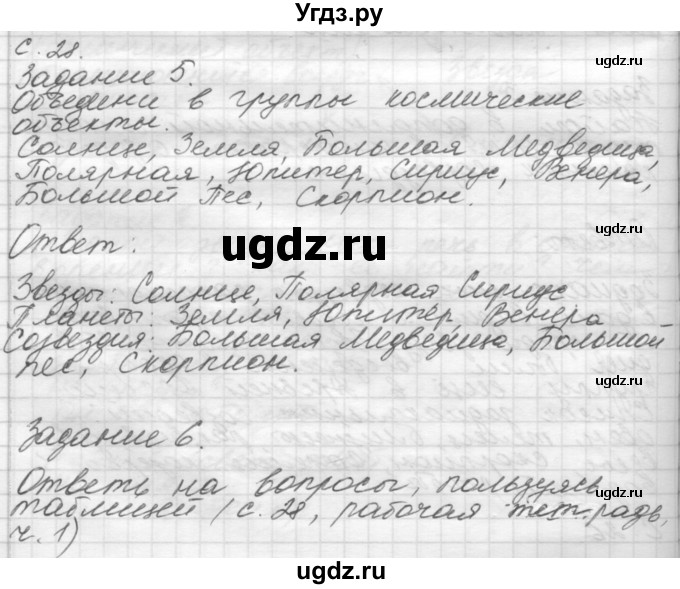 Угдз.ру
с. 28.
ugdz.ru
Задание 5.
Объедини в группы космические
объекты.
Солнце, Земля, Большая Медведица,
Полярная, Юпитер, Сириус, Венера,
Большой Пес, Скорпион.
ugdz.ru
Ответ:
ugdz.ru
Звезды: Солнце, Полярная, Сириус
Планеты: Земля, Юпитер, Венера
Созвездия: Большая Медведица, Большой
пес, Скорпион.
ugdz.ru
Задание 6.
Ответь на вопросы, пользуясь
таблицей (с. 28, рабочая тетрадь,
ugdz.ru
ч. 1)
ugdz.ru